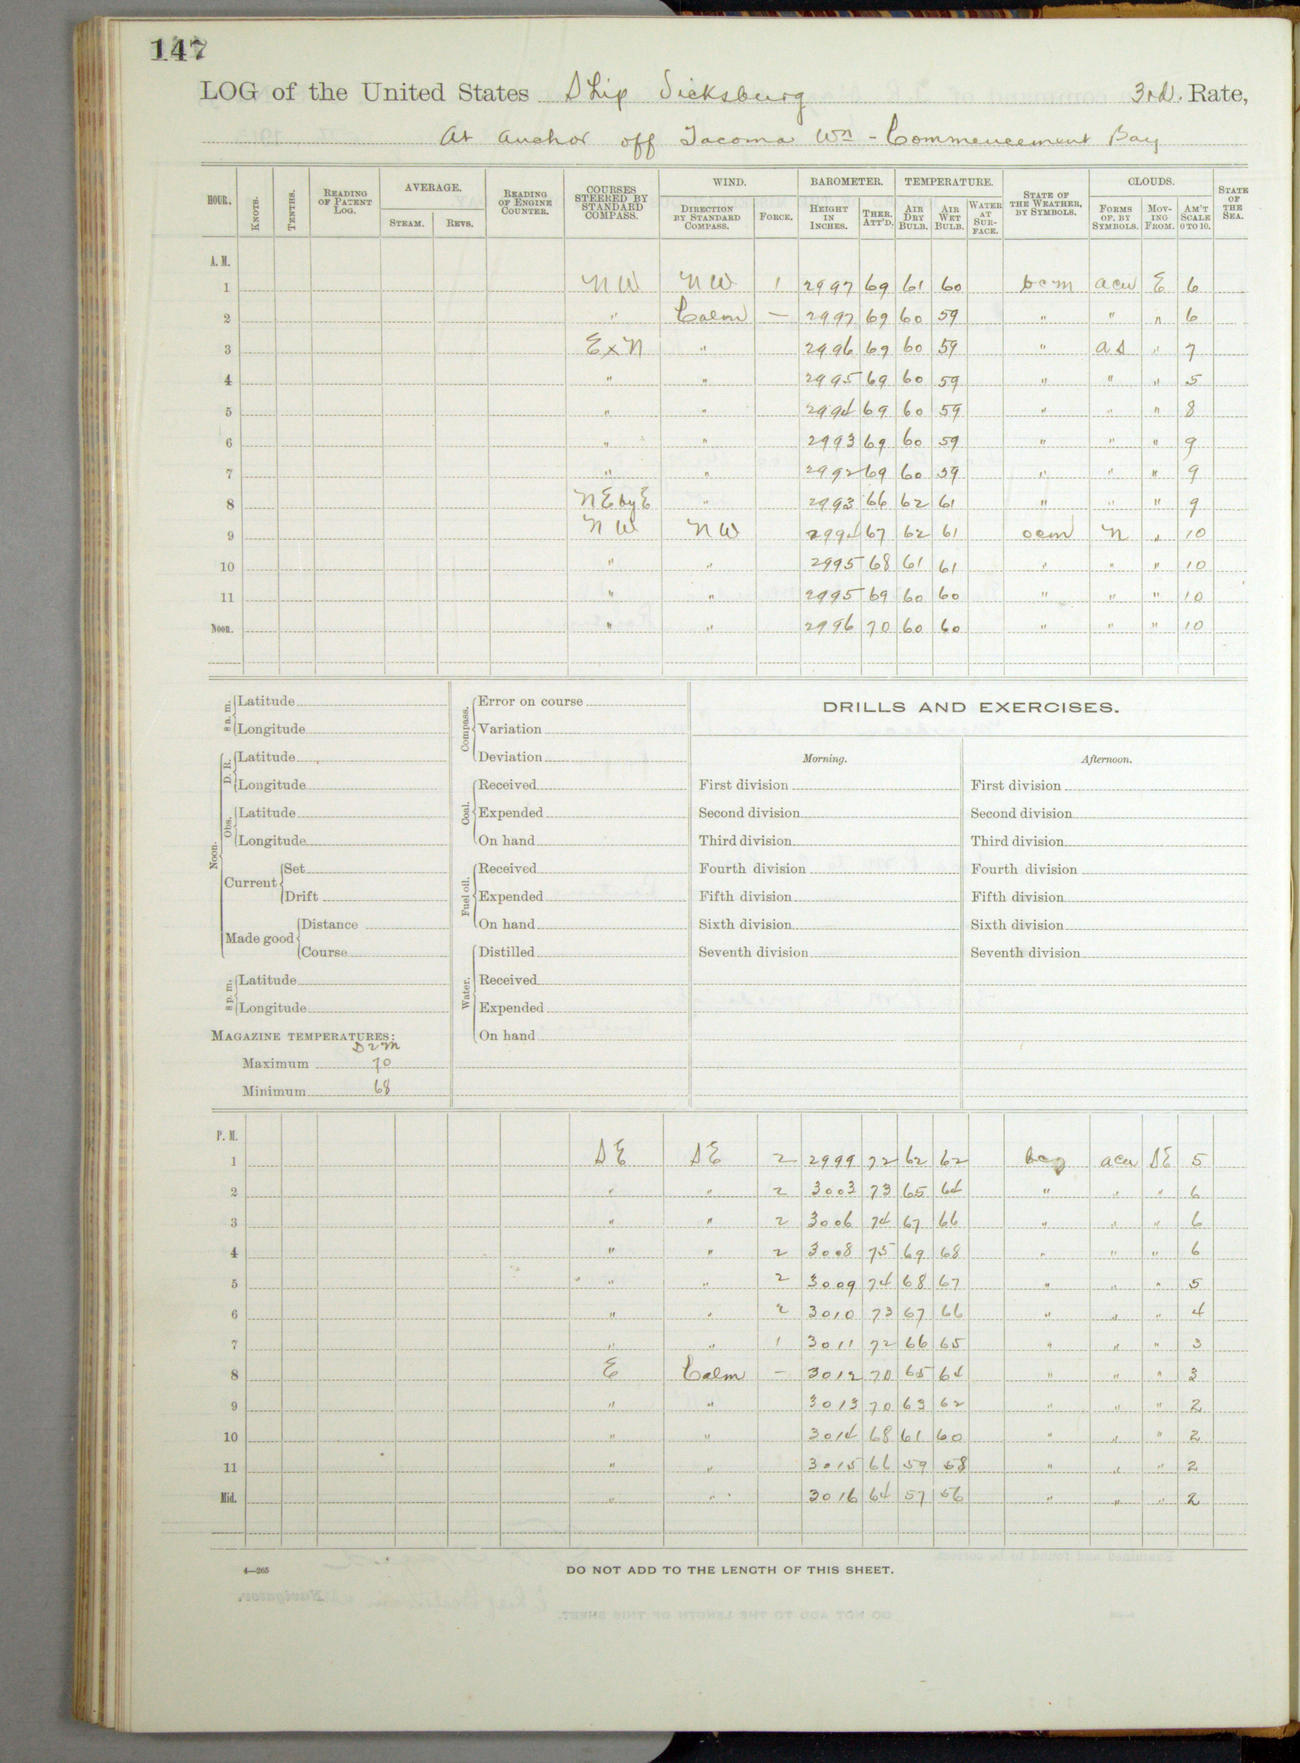 147
LOG of the United States Ship Vicksburg 3rd. Rate,
At anchor off Tacoma Wn - Commencement Bay
HOUR. KNOTS. TENTHS. READING OF PATENT LOG. AVERAGE. STEAM. REVS. READING OF ENGINE COUNTER. COURSES STEERED BY STANDARD COMPASS. WIND. DIRECTION BY STANDARD COMPASS. FORCE. BAROMETER. HEIGHT IN INCHES. THER. ATT'D. TEMPERATURE. AIR DRY BULB. AIR WET BULB. WATER AT SURFACE. STATE OF THE WEATHER, BY SYMBOLS. CLOUDS. FORMS OF, BY SYMBOLS. MOVING FROM. AM'T SCALE 0 TO 10. STATE OF THE SEA.
A. M.
1 NW NW 1 2997 69 61 60 bcm acu E 6
2 " Calm — 2997 69 60 59 " " " 6
3 ExN " 2996 69 60 59 " as " 7
4 " " 2995 69 60 59 " " " 5
5 " " 2994 69 60 59 " " " 8
6 " " 2993 69 60 59 " " " 9
7 " " 2992 69 60 59 " " " 9
8 NEbyE " 2993 66 62 61 " " " 9
9 NW NW 2994 67 62 61 ocm N " 10
10 " " 2995 68 61 61 " " " 10
11 " " 2995 69 60 60 " " " 10
Noon. " " 2996 70 60 60 " " " 10
8 a. m. Latitude
Longitude
Noon. D. R. Latitude
Longitude
Obs. Latitude
Longitude
Current Set
Drift
Made good Distance
Course
8 p. m. Latitude
Longitude
MAGAZINE TEMPERATURES:
Maximum 70
Minimum 68
Compass. Error on course
Variation
Deviation
Coal. Received
Expended
On hand
Fuel oil. Received
Expended
On hand
Water. Distilled
Received
Expended
On hand
DRILLS AND EXERCISES.
Morning.
First division
Second division
Third division
Fourth division
Fifth division
Sixth division
Seventh division
Afternoon.
First division
Second division
Third division
Fourth division
Fifth division
Sixth division
Seventh division
P. M.
1 SE SE 2 2999 72 62 62 acu SE 5
2 " " 2 3003 73 65 64 " " " 6
3 " " 2 3006 74 67 66 " " " 6
4 " " 2 3008 75 69 68 " " " 6
5 " " 2 3009 74 68 67 " " " 5
6 " " 2 3010 73 67 66 " " " 4
7 " " 1 3011 72 66 65 " " " 3
8 E Calm — 3012 70 65 64 " " " 3
9 " " 3013 70 63 62 " " " 2
10 " " 3014 68 61 60 " " " 2
11 " " 3015 66 59 58 " " " 2
Mid. " " 3016 64 57 56 " " " 2
4—265
DO NOT ADD TO THE LENGTH OF THIS SHEET.